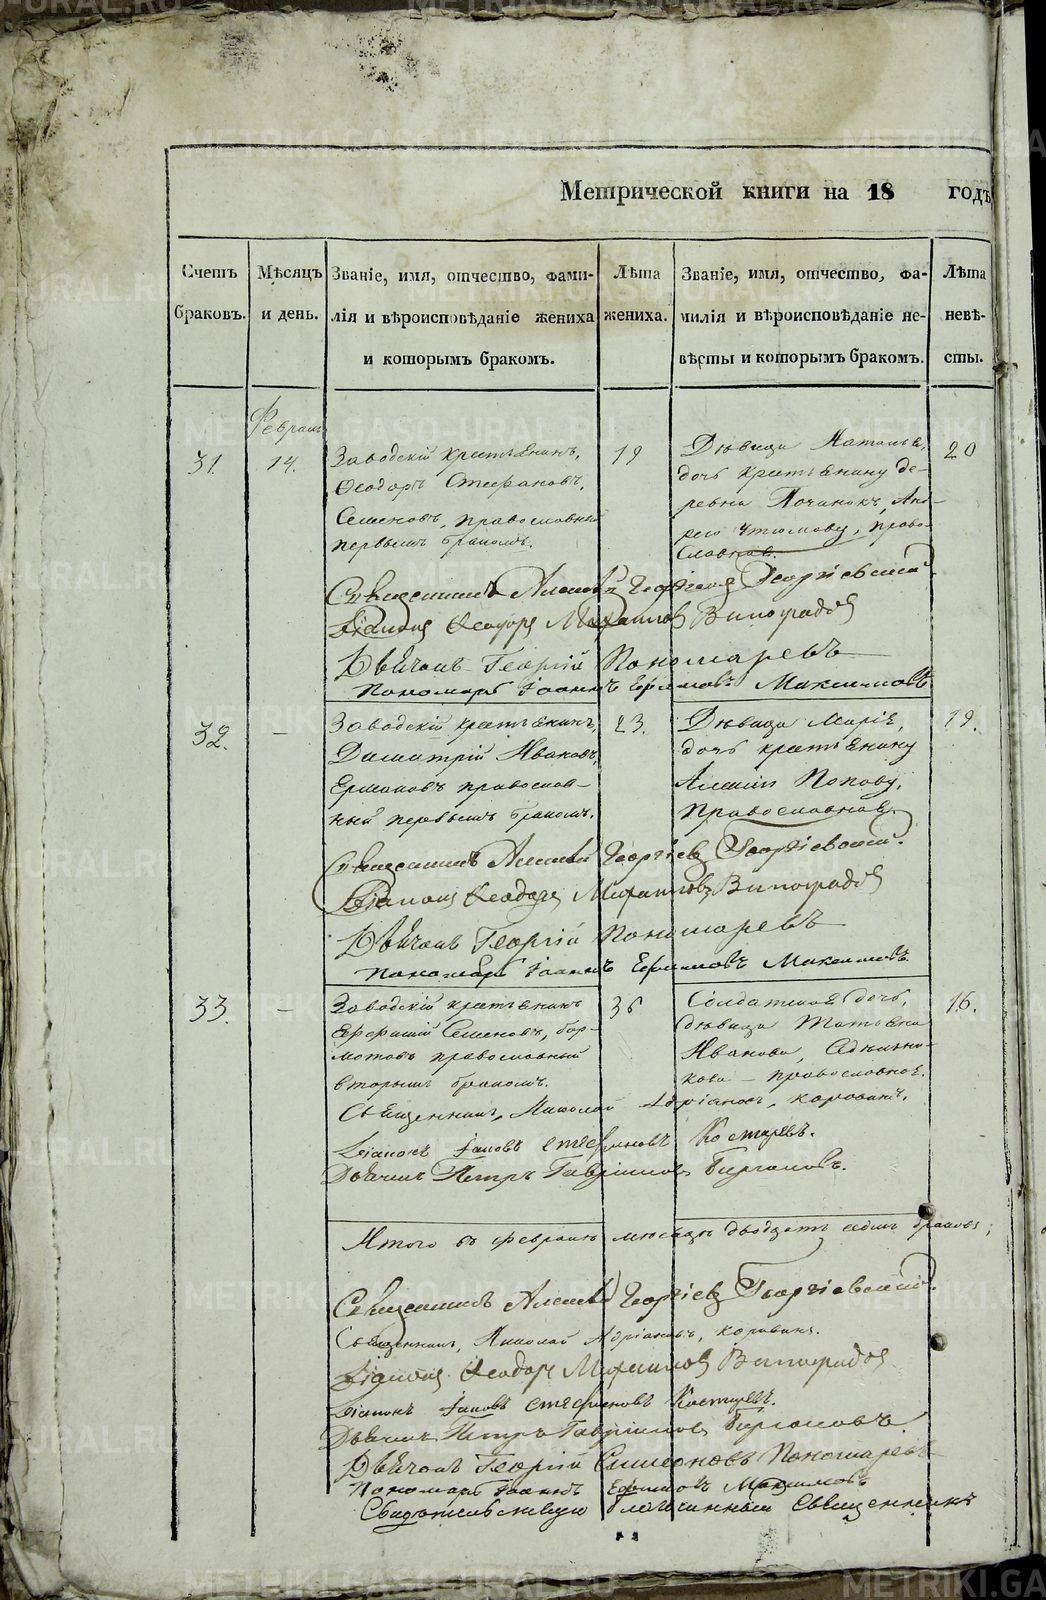 Метрической книги на 18 годъ
Счетъ браковъ.
Мѣсяцъ и день.
Званіе, имя, отчество, фами-
лія и вѣроисповѣданіе жениха
и которымъ бракомъ.
Лѣта жениха.
Званіе, имя, отчество, фа-
милія и вѣроисповѣданіе не-
вѣсты и которымъ бракомъ.
Лѣта невѣ-
сты.
31.
Феврал
14.
Заводскій крестьянинъ,
Ѳеодоръ Стефановъ,
Семеновъ, православный
первымъ бракомъ.
19
Дѣвица Наталья,
дочь крестьянину де-
ревни Починокъ, Анд-
рею православная.
20
Священникъ Алексѣй Георгіевъ Георгіевскій.
Діаконъ Ѳеодоръ Михаиловъ Виноградовъ
Дьячокъ Георгій Пономаревъ
Пономарь Іоаннъ Ефимовъ Максимовъ
32.
—
Заводскій крестьянинъ,
Димитрій Ивановъ,
Ермаковъ православ-
ный первымъ бракомъ.
23.
Дѣвица Марія,
дочь крестьянину
Алексѣю Попову,
православная.
19.
Священникъ Алексѣй Георгіевъ Георгіевскій.
Діаконъ Ѳеодоръ Михаиловъ Виноградовъ
Дьячокъ Георгій Пономаревъ
Пономарь Іоаннъ Ефимовъ Максимовъ
33.
—
Заводскій крестьянинъ
Семеновъ, Бар-
мотовъ православный
вторымъ бракомъ.
36
Солдатская дочь,
дѣвица Татьяна
Иванова,
православная.
16.
Священникъ, Николай Адріановъ, Коровинъ.
Діаконъ Іаковъ Стефановъ Костаревъ.
Дьячекъ Петръ Гавриловъ
Итого въ февралѣ мѣсяцѣ двадцать седмь браковъ;
Священникъ Алексѣй Георгіевъ Георгіевскій.
Священникъ, Николай Адріановъ, Коровинъ.
Діаконъ Ѳеодоръ Михаиловъ Виноградовъ
Діаконъ Іаковъ Стефановъ Костаревъ.
Дьячекъ Петръ Гавриловъ
Дьячокъ Георгій Симеоновъ Пономаревъ
Пономарь Іоаннъ Ефимовъ Максимовъ
Благочинный Священникъ